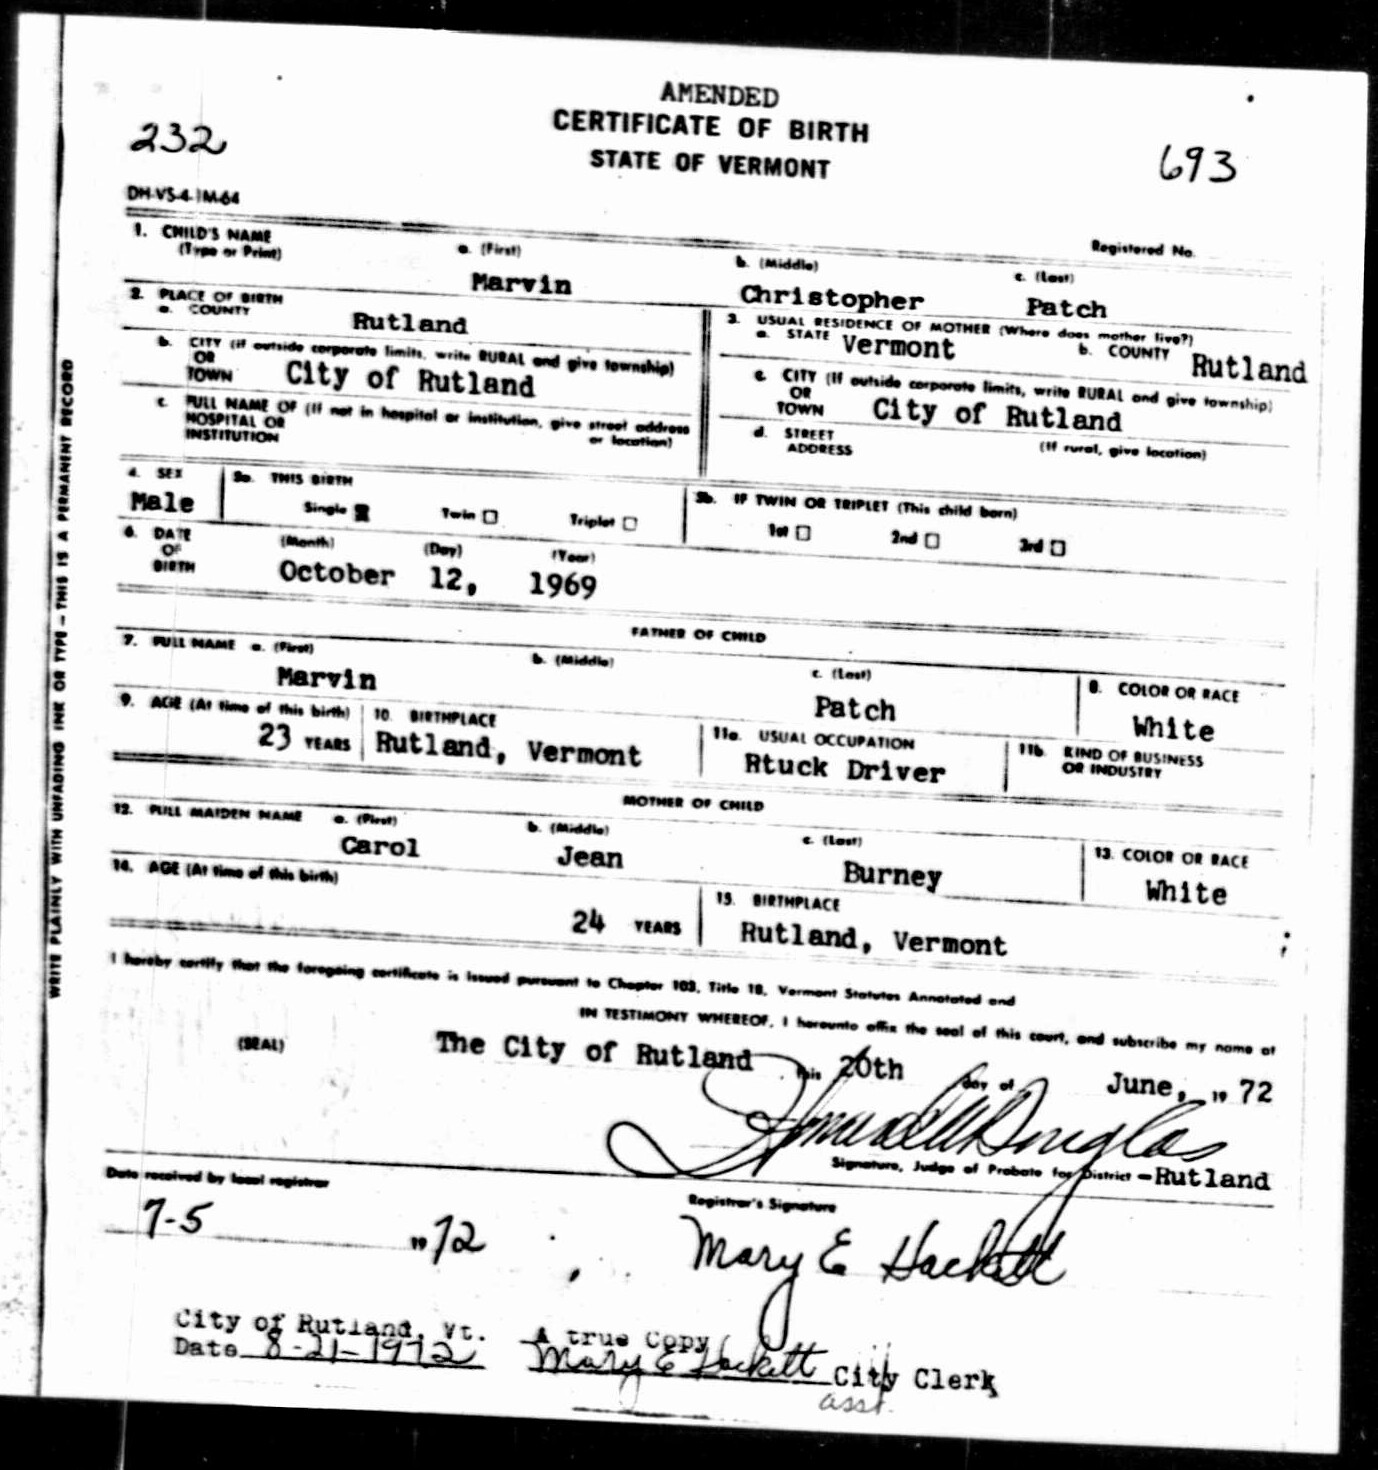 AMENDED
CERTIFICATE OF BIRTH
STATE OF VERMONT
232
693
DH-VS-4-1M-64
Registered No.
1. CHILD'S NAME
(Type or Print)
a. (First)
b. (Middle)
c. (Last)
Marvin Christopher Patch
2. PLACE OF BIRTH
a. COUNTY
Rutland
b. CITY (if outside corporate limits, write RURAL and give township)
OR
TOWN City of Rutland
c. FULL NAME OF (If not in hospital or institution, give street address
HOSPITAL OR or location)
INSTITUTION
3. USUAL RESIDENCE OF MOTHER (Where does mother live?)
a. STATE Vermont b. COUNTY Rutland
c. CITY (If outside corporate limits, write RURAL and give township)
OR
TOWN City of Rutland
d. STREET (If rural, give location)
ADDRESS
4. SEX
Male
5a. THIS BIRTH
Single Twin Triplet
5b. IF TWIN OR TRIPLET (This child born)
1st 2nd 3rd
6. DATE
OF
BIRTH
(Month) (Day) (Year)
October 12, 1969
FATHER OF CHILD
7. FULL NAME a. (First) b. (Middle) c. (Last)
Marvin Patch
8. COLOR OR RACE
White
9. AGE (At time of this birth)
23 YEARS
10. BIRTHPLACE
Rutland, Vermont
11a. USUAL OCCUPATION
Rtuck Driver
11b. KIND OF BUSINESS
OR INDUSTRY
MOTHER OF CHILD
12. FULL MAIDEN NAME a. (First) b. (Middle) c. (Last)
Carol Jean Burney
13. COLOR OR RACE
White
14. AGE (At time of this birth)
24 YEARS
15. BIRTHPLACE
Rutland, Vermont
I hereby certify that the foregoing certificate is issued pursuant to Chapter 103, Title 18, Vermont Statutes Annotated and
IN TESTIMONY WHEREOF, I hereunto affix the seal of this court, and subscribe my name at
(SEAL) The City of Rutland this 20th day of June, 19 72
Douglas
Signature, Judge of Probate for District - Rutland
Date received by local registrar
7-5 19 72
Registrar's Signature
Mary E Hackett
City of Rutland, Vt. A true Copy
Date 8-21-1972 Mary E Hackett City Clerk
asst.
WRITE PLAINLY WITH UNFADING INK OR TYPE - THIS IS A PERMANENT RECORD